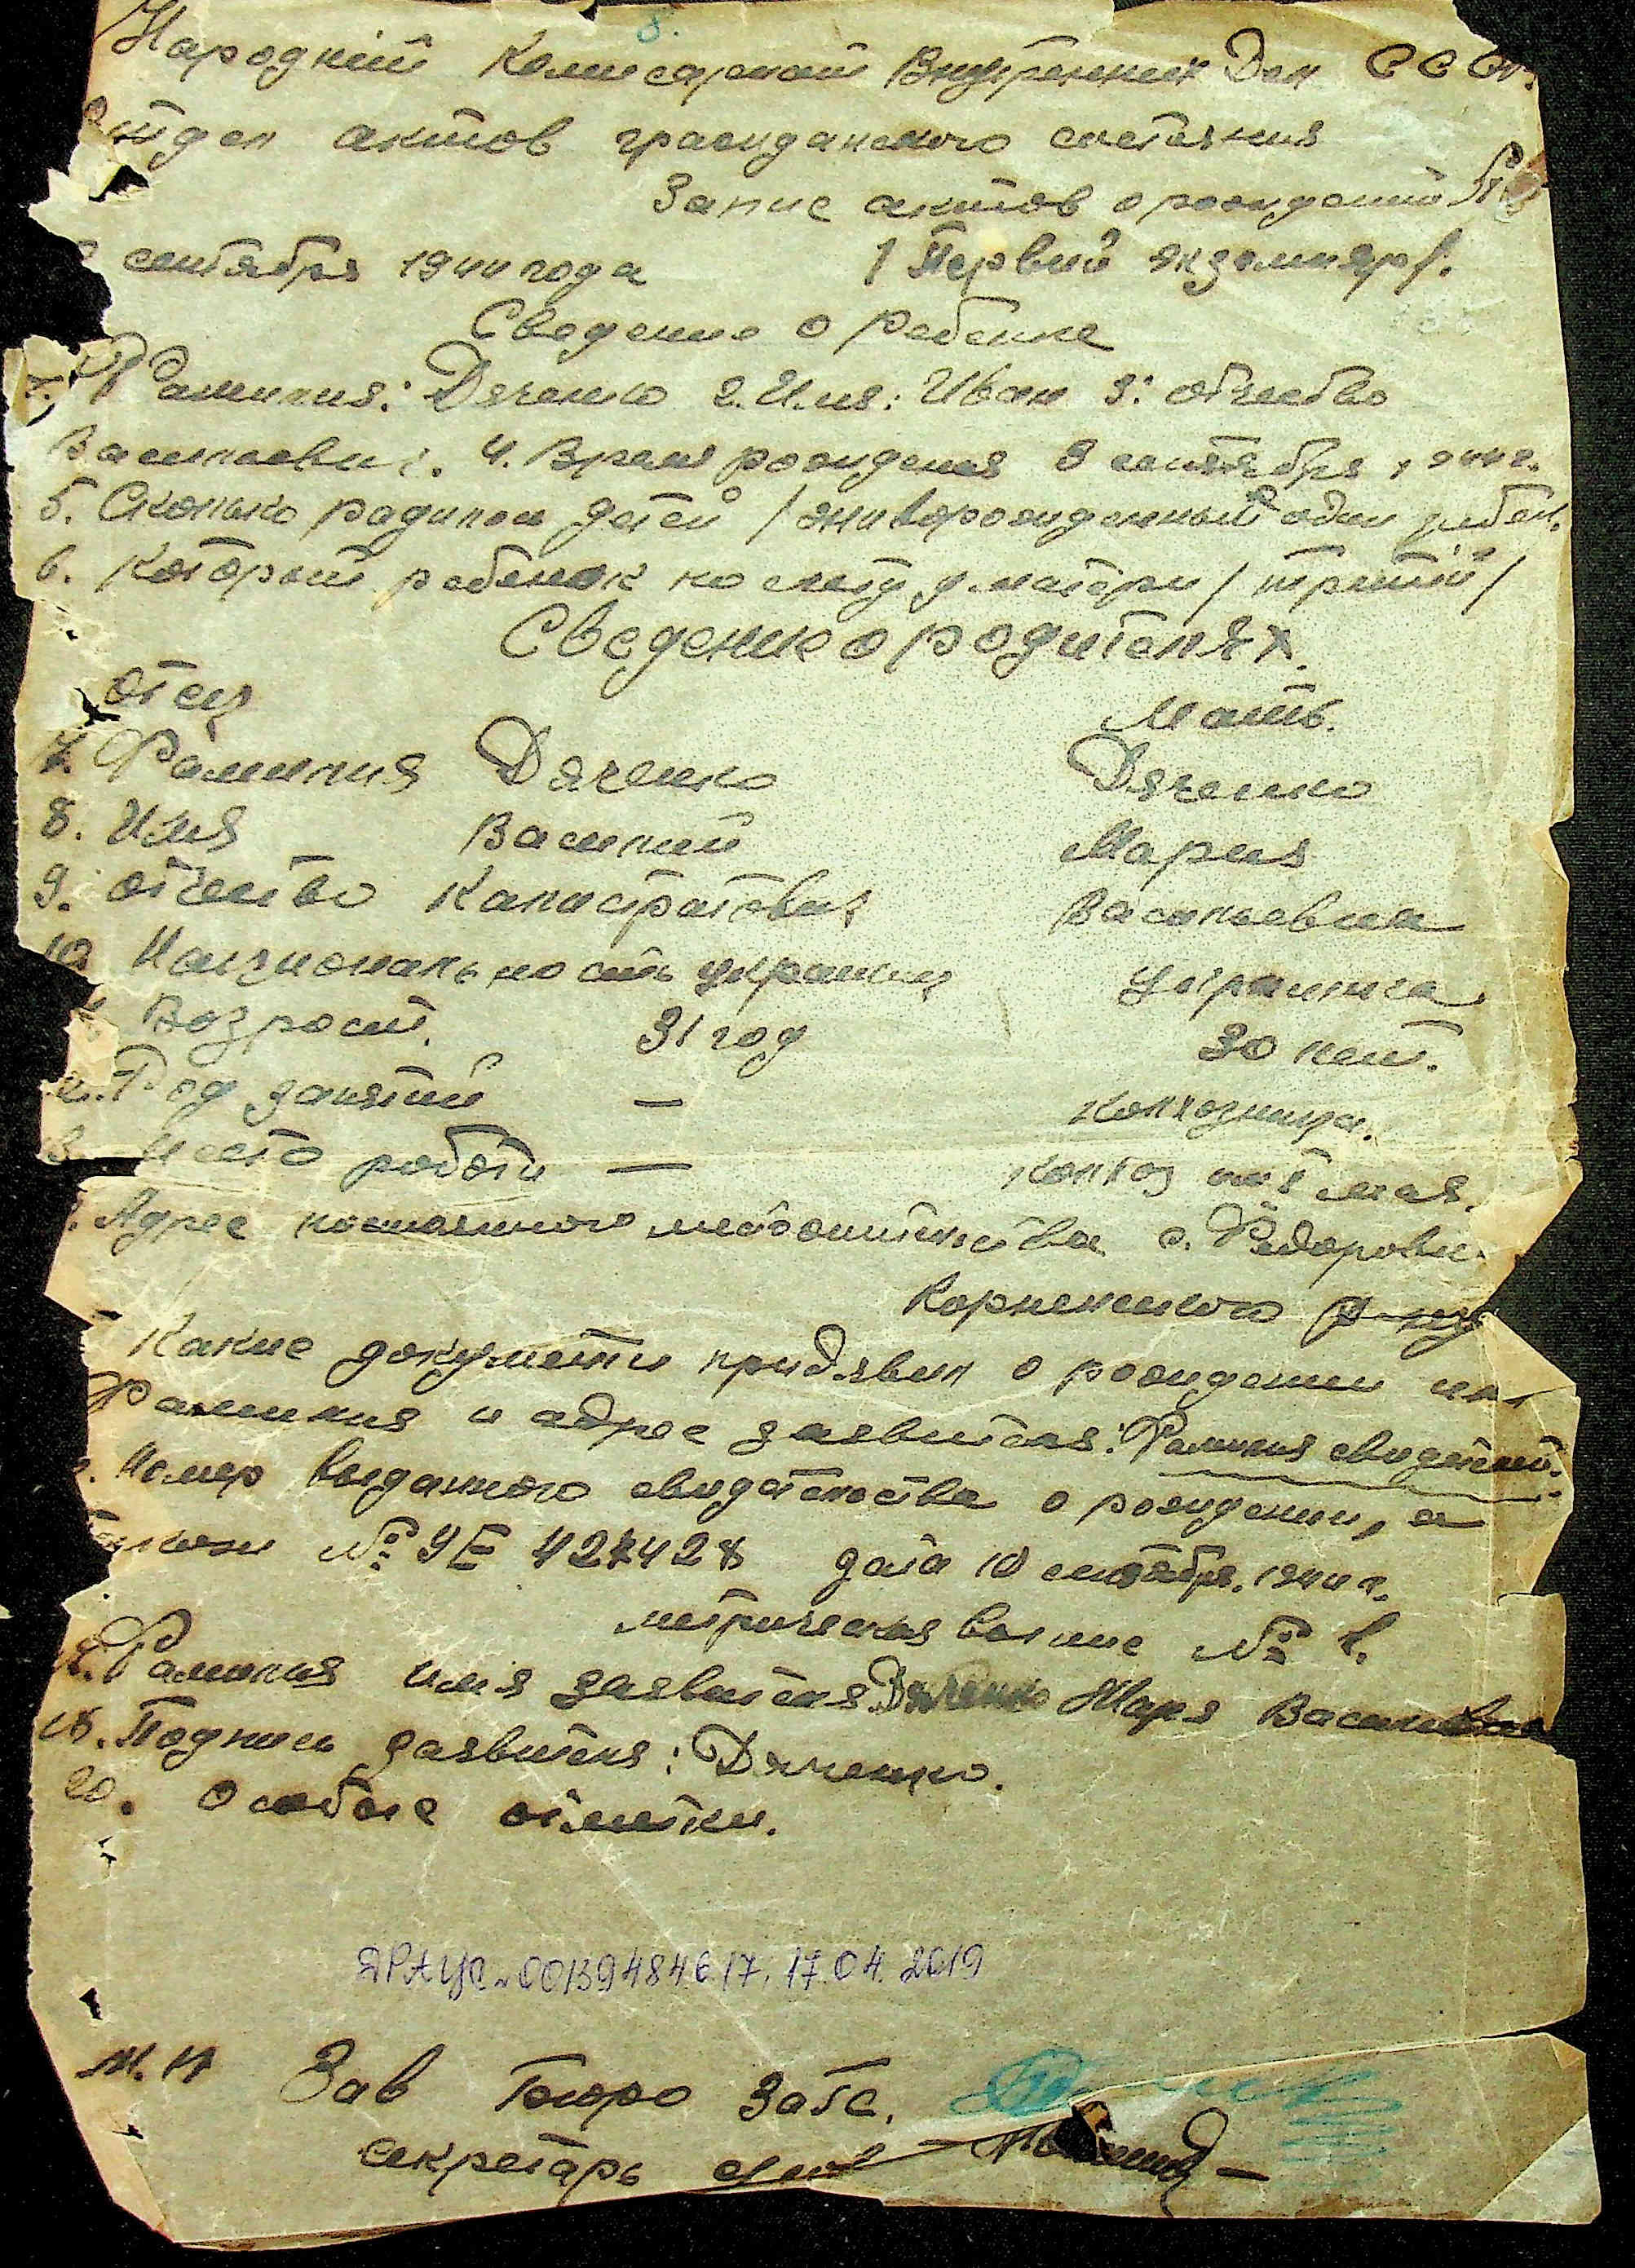 8.
Народний Комисариат Внутренних Дел СССР.
Отдел актов гражданского состаяния
Запис актов о рождений №
сентября 1944 года / Первий экземпляр/.
Сведение о Ребенке
1. Фамилия: Дяченко 2. Имя: Иван 3: отчество
Васильевич. 4. Время рождения 3 сентября 1944 г.
5. Сколько радилось детей / живорожденный один ребен.
6. Которий ребенок по счету у матери / третий /
Сведение о родителях.
отец Мать.
7. Фамилия Дяченко Дяченко
8. Имя Василий Мария
9. отчество Калистратович Васильевна
10 Национальность украинец Украинка.
Возрост. 31 год 30 лет.
Род занятий — колхозница.
Место роботи — колхоз мая.
Адрес постоянного местожительства с. Федоровка
Корненского
Какие документи придявил о рождении
Фамилия и адрес заявителя: Фамилия
Номер выданного свидетельства о рождении, а
№ УЕ 427428 дата 10 сентября. 1944 г.
метрическая
Фамилия имя заявителя Дяченко Мария Васильевна
Подпись заявителя: Дяченко.
20. Особые отметки.
ДРАЦС 00139484617, 17.04.2019
М.П Зав Бюро Загс.
секретарь